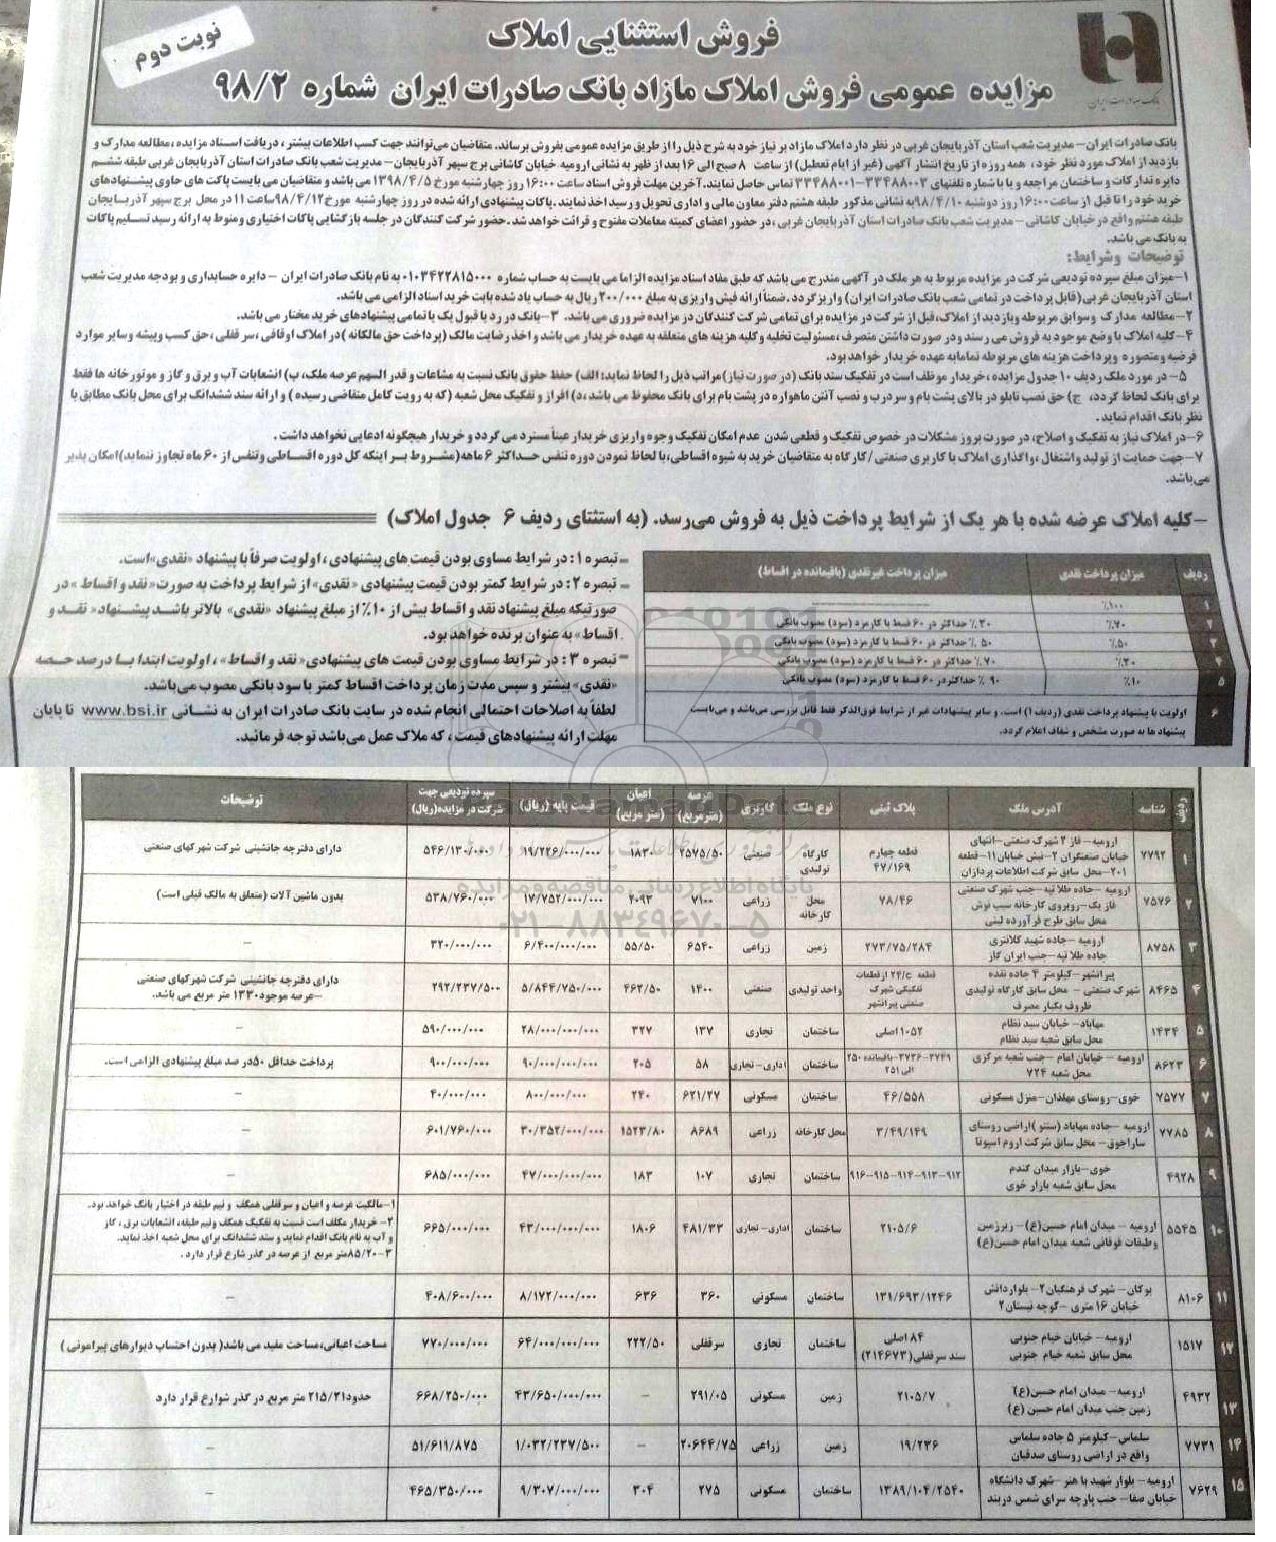 نوبت دوم
فروش استثنایی املاک
مزایده عمومی فروش املاک مازاد بانک صادرات ایران شماره ۹۸/۲
بانک صادرات ایران
بانک صادرات ایران– مدیریت شعب استان آذربایجان غربی در نظر دارد املاک مازاد بر نیاز خود به شرح ذیل را از طریق مزایده عمومی بفروش برساند. متقاضیان می‌توانند جهت کسب اطلاعات بیشتر ، دریافت اسناد مزایده ، مطالعه مدارک و
بازدید از املاک مورد نظر خود، همه روزه از تاریخ انتشار آگهی (غیر از ایام تعطیل) از ساعت ۸ صبح الی ۱۶ بعد از ظهر به نشانی ارومیه خیابان کاشانی برج سپهر آذربایجان– مدیریت شعب بانک صادرات استان آذربایجان غربی طبقه ششم
دایره تدارکات و ساختمان مراجعه و یا با شماره تلفنهای ۳۳۴۸۸۰۰۳–۳۳۴۸۸۰۰۱ تماس حاصل نمایند. آخرین مهلت فروش اسناد ساعت ۱۶:۰۰ روز چهارشنبه مورخ ۱۳۹۸/۴/۵ می باشد و متقاضیان می بایست پاکت های حاوی پیشنهادهای
خرید خود را تا قبل از ساعت ۱۶:۰۰ روز دوشنبه ۹۸/۴/۱۰ به نشانی مذکور طبقه هشتم دفتر معاون مالی و اداری تحویل و رسید اخذ نمایند. پاکات پیشنهادی ارائه شده در روز چهارشنبه مورخ ۹۸/۴/۱۲ ساعت ۱۱ در محل برج سپهر آذربایجان
طبقه هشتم واقع در خیابان کاشانی – مدیریت شعب بانک صادرات استان آذربایجان غربی ، در حضور اعضای کمیته معاملات مفتوح و قرائت خواهد شد. حضور شرکت کنندگان در جلسه بازگشایی پاکات اختیاری و منوط به ارائه رسید تسلیم پاکات
به بانک می باشد.
توضیحات وشرایط:
۱–میزان مبلغ سپرده تودیعی شرکت در مزایده مربوط به هر ملک در آگهی مندرج می باشد که طبق مفاد اسناد مزایده الزاما می بایست به حساب شماره ۰۱۰۳۴۲۲۸۱۵۰۰۰ به نام بانک صادرات ایران – دایره حسابداری و بودجه مدیریت شعب
استان آذربایجان غربی (قابل پرداخت در تمامی شعب بانک صادرات ایران) واریز گردد. ضمناً ارائه فیش واریزی به مبلغ ۲۰۰/۰۰۰ ریال به حساب یاد شده بابت خرید اسناد الزامی می باشد.
۲–مطالعه مدارک وسوابق مربوطه وبازدید از املاک،قبل از شرکت در مزایده برای تمامی شرکت کنندگان در مزایده ضروری می باشد. ۳–بانک در رد یا قبول یک یا تمامی پیشنهادهای خرید مختار می باشد.
۴–کلیه املاک با وضع موجود به فروش می رسند ودر صورت داشتن متصرف ،مسئولیت تخلیه وکلیه هزینه های متعلقه به عهده خریدار می باشد و اخذ رضایت مالک (پرداخت حق مالکانه )در املاک اوقافی ،سر قفلی ،حق کسب وپیشه وسایر موارد
فرضیه ومتصوره وپرداخت هزینه های مربوطه تمامابه عهده خریدار خواهد بود.
۵–در مورد ملک ردیف ۱۰ جدول مزایده ،خریدار موظف است در تفکیک سند بانک (در صورت نیاز)مراتب ذیل را لحاظ نماید: الف) حفظ حقوق بانک نسبت به مشاعات و قدر السهم عرصه ملک، ب) انشعابات آب و برق و گاز و موتورخانه ها فقط
برای بانک لحاظ گردد، ج) حق نصب تابلو در بالای پشت بام و سردرب و نصب آنتن ماهواره در پشت بام برای بانک محفوظ می باشد ،د) افراز و تفکیک محل شعبه (که به رویت کامل متقاضی رسیده ) و ارائه سند ششدانگ برای محل بانک مطابق با
نظر بانک اقدام نماید .
۶–در املاک نیاز به تفکیک و اصلاح، در صورت بروز مشکلات در خصوص تفکیک و قطعی شدن عدم امکان تفکیک وجوه واریزی خریدار عیناً مسترد می گردد و خریدار هیچگونه ادعایی نخواهد داشت .
۷–جهت حمایت از تولید واشتغال ،واگذاری املاک با کاربری صنعتی /کارگاه به متقاضیان خرید به شیوه اقساطی،با لحاظ نمودن دوره تنفس حداکثر ۶ ماهه(مشروط بر اینکه کل دوره اقساطی وتنفس از ۶۰ ماه تجاوز ننماید)امکان پذیر
می باشد.
–کلیه املاک عرضه شده با هر یک از شرایط پرداخت ذیل به فروش می‌رسد. (به استثنای ردیف ۶ جدول املاک)
ردیف میزان پرداخت نقدی میزان پرداخت غیرنقدی (باقیمانده در اقساط)
۱ ٪۱۰۰
۲ ٪۷۰ ۳۰٪ حداکثر در ۶۰ قسط با کارمزد (سود) مصوب بانکی
۳ ٪۵۰ ۵۰٪ حداکثر در ۶۰ قسط با کارمزد (سود) مصوب بانکی
۴ ٪۳۰ ۷۰٪ حداکثر در ۶۰ قسط با کارمزد (سود) مصوب بانکی
۵ ٪۱۰ ۹۰٪ حداکثر در ۶۰ قسط با کارمزد (سود) مصوب بانکی
۶ اولویت با پیشنهاد پرداخت نقدی (ردیف ۱) است. و سایر پیشنهادات غیر از شرایط فوق‌الذکر فقط قابل بررسی می‌باشد و می‌بایست
پیشنهاد ها به صورت مشخص و شفاف اعلام گردد.
– تبصره ۱: در شرایط مساوی بودن قیمت های پیشنهادی ، اولویت صرفاً با پیشنهاد «نقدی»است.
– تبصره ۲: در شرایط کمتر بودن قیمت پیشنهادی «نقدی» از شرایط پرداخت به صورت«نقد و اقساط » در
صورتیکه مبلغ پیشنهاد نقد و اقساط بیش از ۱۰٪ از مبلغ پیشنهاد «نقدی» بالاتر باشد پیشنهاد« نقد و
اقساط» به عنوان برنده خواهد بود.
– تبصره ۳ : در شرایط مساوی بودن قیمت های پیشنهادی«نقد و اقساط» ، اولویت ابتدا با درصد حصه
«نقدی» بیشتر و سپس مدت زمان پرداخت اقساط کمتر با سود بانکی مصوب می‌باشد.
لطفاً به اصلاحات احتمالی انجام شده در سایت بانک صادرات ایران به نشانی www.bsi.ir تا پایان
مهلت ارائه پیشنهادهای قیمت ، که ملاک عمل می‌باشد توجه فرمائید.
ردیف شناسه آدرس ملک پلاک ثبتی نوع ملک کاربری عرصه (مترمربع) اعیان (متر مربع) قیمت پایه (ریال) سپرده تودیعی جهت شرکت در مزایده(ریال) توضیحات
۱ ۷۷۹۲ ارومیه– فاز ۲ شهرک صنعتی–انتهای خیابان صنعتگران ۲–نبش خیابان ۱۱–قطعه ۲۰۱–محل سابق شرکت اطلاعات پردازان قطعه چهارم ۴۷/۱۶۹ کارگاه تولیدی صنعتی ۲۵۷۵/۵۰ ۱۸۳۰ ۱۹/۲۲۶/۰۰۰/۰۰۰ ۵۴۶/۱۳۰/۰۰۰ دارای دفترچه جانشینی شرکت شهرکهای صنعتی
۲ ۷۵۷۶ ارومیه –جاده طلا تپه–جنب شهرک صنعتی فاز یک–روبروی کارخانه سیب نوش محل سابق طرح فرآورده لبنی ۷۸/۴۶ محل کارخانه زراعی ۷۱۰۰ ۴۰۹۳ ۱۷/۷۵۲/۰۰۰/۰۰۰ ۵۳۸/۷۶۰/۰۰۰ بدون ماشین آلات (متعلق به مالک قبلی است)
۳ ۸۷۵۸ ارومیه –جاده شهید کلانتری جاده طلا تپه–جنب ایران گاز ۲۷۳/۷۵/۲۸۴ زمین زراعی ۶۵۴۰ ۵۵/۵۰ ۶/۴۰۰/۰۰۰/۰۰۰ ۳۲۰/۰۰۰/۰۰۰ –
۴ ۸۴۶۵ پیرانشهر–کیلومتر ۴ جاده نقده شهرک صنعتی – محل سابق کارگاه تولیدی ظروف یکبار مصرف قطعه ۲۴/c از قطعات تفکیکی شهرک صنعتی پیرانشهر واحد تولیدی صنعتی ۱۴۰۰ ۴۶۳/۵۰ ۵/۸۴۴/۷۵۰/۰۰۰ ۲۹۲/۲۳۷/۵۰۰ دارای دفترچه جانشینی شرکت شهرکهای صنعتی –عرصه موجود ۱۳۳۰ متر مربع می باشد.
۵ ۱۴۳۴ مهاباد– خیابان سید نظام محل سابق شعبه سید نظام ۱۰۵۲ اصلی ساختمان تجاری ۱۳۷ ۳۲۷ ۲۸/۰۰۰/۰۰۰/۰۰۰ ۵۹۰/۰۰۰/۰۰۰ –
۶ ۸۶۲۳ ارومیه – خیابان امام –جنب شعبه مرکزی محل شعبه ۷۲۴ ۳۷۴۹–۳۷۳۶–باقیمانده ۲۵۰ الی ۲۵۱ ساختمان اداری–تجاری ۵۸ ۲۰۵ ۹۰/۰۰۰/۰۰۰/۰۰۰ ۹۰۰/۰۰۰/۰۰۰ پرداخت حداقل ۵۰ در صد مبلغ پیشنهادی الزامی است.
۷ ۷۵۷۷ خوی–روستای مهلذان–منزل مسکونی ۴۶/۵۵۸ ساختمان مسکونی ۶۳۱/۳۷ ۲۴۰ ۸۰۰/۰۰۰/۰۰۰ ۴۰/۰۰۰/۰۰۰ –
۸ ۷۷۸۵ ارومیه –جاده مهاباد (سنتو )اراضی روستای ساراجوق– محل سابق شرکت اروم اسپوتا ۳/۴۹/۱۴۹ محل کارخانه زراعی ۸۶۸۹ ۱۵۲۳/۸۰ ۳۰/۳۵۲/۰۰۰/۰۰۰ ۶۰۱/۷۶۰/۰۰۰ –
۹ ۴۹۲۸ خوی–بازار میدان گندم محل سابق شعبه بازار خوی ۹۱۲–۹۱۳–۹۱۴–۹۱۵–۹۱۶ ساختمان تجاری ۱۰۷ ۱۸۳ ۴۷/۰۰۰/۰۰۰/۰۰۰ ۶۸۵/۰۰۰/۰۰۰ –
۱۰ ۵۵۴۵ ارومیه – میدان امام حسین(ع)– زیرزمین وطبقات فوقانی شعبه میدان امام حسین(ع) ۲۱۰۵/۶ ساختمان اداری–تجاری ۴۸۱/۳۳ ۱۸۰۶ ۴۳/۰۰۰/۰۰۰/۰۰۰ ۶۶۵/۰۰۰/۰۰۰ ۱–مالکیت عرصه و اعیان و سرقفلی همکف و نیم طبقه در اختیار بانک خواهد بود. ۲– خریدار مکلف است نسبت به تفکیک همکف و نیم طبقه، انشعابات برق ، گاز و آب به نام بانک اقدام نماید و سند ششدانگ برای محل شعبه اخذ نماید. ۳–۸۵/۲۰متر مربع از عرصه در گذر شارع قرار دارد .
۱۱ ۸۱۰۶ بوکان– شهرک فرهنگیان ۲–بلوار دانش خیابان ۱۶ متری –کوچه نیستان ۲ ۱۳۱/۶۹۳/۱۲۴۶ ساختمان مسکونی ۳۶۰ ۶۳۶ ۸/۱۷۲/۰۰۰/۰۰۰ ۴۰۸/۶۰۰/۰۰۰ –
۱۲ ۱۵۱۷ ارومیه– خیابان خیام جنوبی محل سابق شعبه خیام جنوبی ۸۴ اصلی سند سرقفلی(۲۱۴۶۷۳) ساختمان تجاری سرقفلی ۲۲۲/۵۰ ۶۴/۰۰۰/۰۰۰/۰۰۰ ۷۷۰/۰۰۰/۰۰۰ مساحت اعیانی،مساحت مفید می باشد( بدون احتساب دیوارهای پیرامونی )
۱۳ ۴۹۳۲ ارومیه– میدان امام حسین(ع) زمین جنب میدان امام حسین (ع) ۲۱۰۵/۷ زمین مسکونی ۲۹۱/۰۵ – ۴۳/۶۵۰/۰۰۰/۰۰۰ ۶۶۸/۲۵۰/۰۰۰ حدود ۲۱۵/۳۱ متر مربع در گذر شوارع قرار دارد
۱۴ ۷۷۳۹ سلماس–کیلومتر ۵ جاده سلماس واقع در اراضی روستای صدقیان ۱۹/۲۳۶ زمین زراعی ۲۰۶۴۴/۷۵ – ۱/۰۳۲/۲۳۷/۵۰۰ ۵۱/۶۱۱/۸۷۵ –
۱۵ ۷۶۲۹ ارومیه– بلوار شهید با هنر –شهرک دانشگاه خیابان صفا– جنب پارچه سرای شمس دربند ۱۳۸۹/۱۰۴/۲۵۴۰ ساختمان مسکونی ۲۷۵ ۳۰۴ ۹/۳۰۷/۰۰۰/۰۰۰ ۴۶۵/۳۵۰/۰۰۰ –
پایگاه اطلاع رسانی مناقصه و مزایده
۰۲۱–۸۸۳۴۹۶۷۰–۵